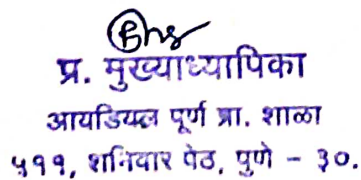 प्र. मुख्याध्यापिका
आयडियल पूर्ण प्रा. शाळा
५११, शनिवार पेठ, पुणे - ३०.